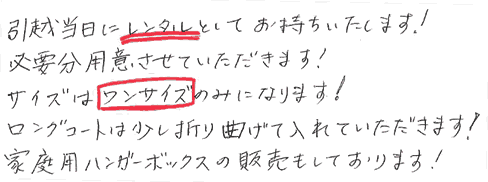 引越当日にレンタルとしてお持ちいたします!
必要分用意させていただきます!
サイズはワンサイズのみになります!
ロングコートは少し折り曲げて入れていただきます!
家庭用ハンガーボックスの販売もしております!